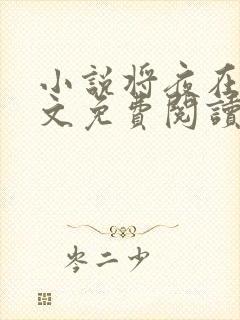 小說將夜在
文免費閱讀
岑二少